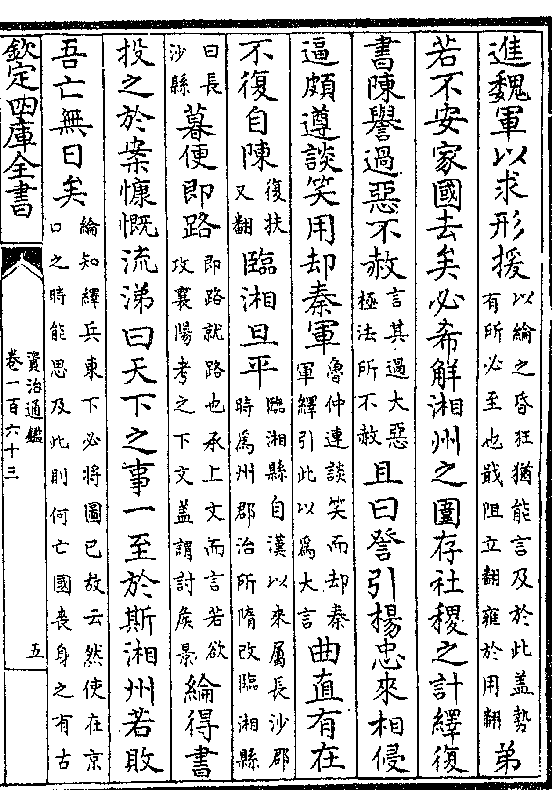 進魏軍以求形援以綸之昏狂猶能言及於此盖勢有所必至也戢阻立翻雍於用翻弟
若不安家國去矣必希解湘州之圍存社稷之計繹復
書陳譽過惡不赦言其過大惡極法所不赦且曰詧引楊忠來相侵
逼頗遵談笑用却秦軍魯仲連談笑而却秦軍繹引此以爲大言曲直有在
不復自陳復扶又翻臨湘旦平臨湘縣自漢以來屬長沙郡時爲州郡治所隋改臨湘縣
曰長沙縣暮便即路即路就路也承上文而言若欲攻襄陽考之下文盖謂討侯景綸得書
投之於案慷慨流涕曰天下之事一至於斯湘州若敗
吾亡無日矣綸知繹兵東下必將圖已故云然使在京口之時能思及此則何亡國喪身之有古
欽定四庫全書
資治通鑑
卷一百六十三
五